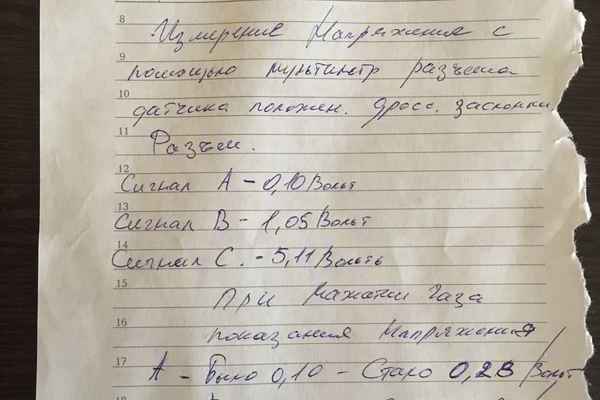 8
Измерение Напряжения с
9
помощью мультиметр разъема
10
датчика положен. дросс. заслонки
11
Разъем.
12
Сигнал А - 0,10 Вольт
13
Сигнал В - 1,05 Вольт
14
Сигнал С. - 5,11 Вольть
15
При Нажатии Газа
16
показания Напряжения
17
А - Было 0,10 - Стало 0,23 Вольт
18